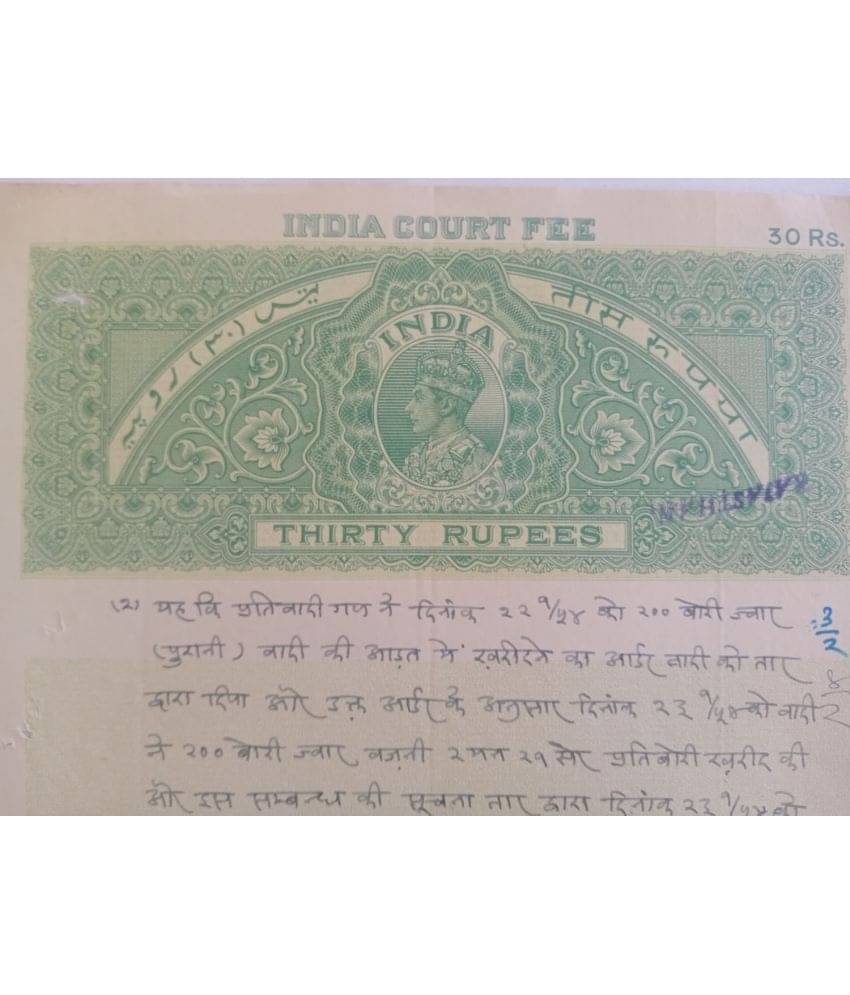 INDIA COURT FEE
30 Rs.
روپیہ (۳۰) تیس
INDIA
तीस रूपया
THIRTY RUPEES
(२) यह कि प्रतिवादी गण ने दिनांक २२ १/५४ को २०० बोरी ज्वार
(पुरानी) वादी की आड़त में खरीदने का आर्डर वादी को तार
द्वारा दिया और उक्त आर्डर के अनुसार दिनांक २३ १/५४ को वादी
ने २०० बोरी ज्वार वज़नी २ मन २१ सेर प्रतिबोरी खरीद की
और इस सम्बन्ध की सूचना तार द्वारा दिनांक २३ १/५४ को
3/2